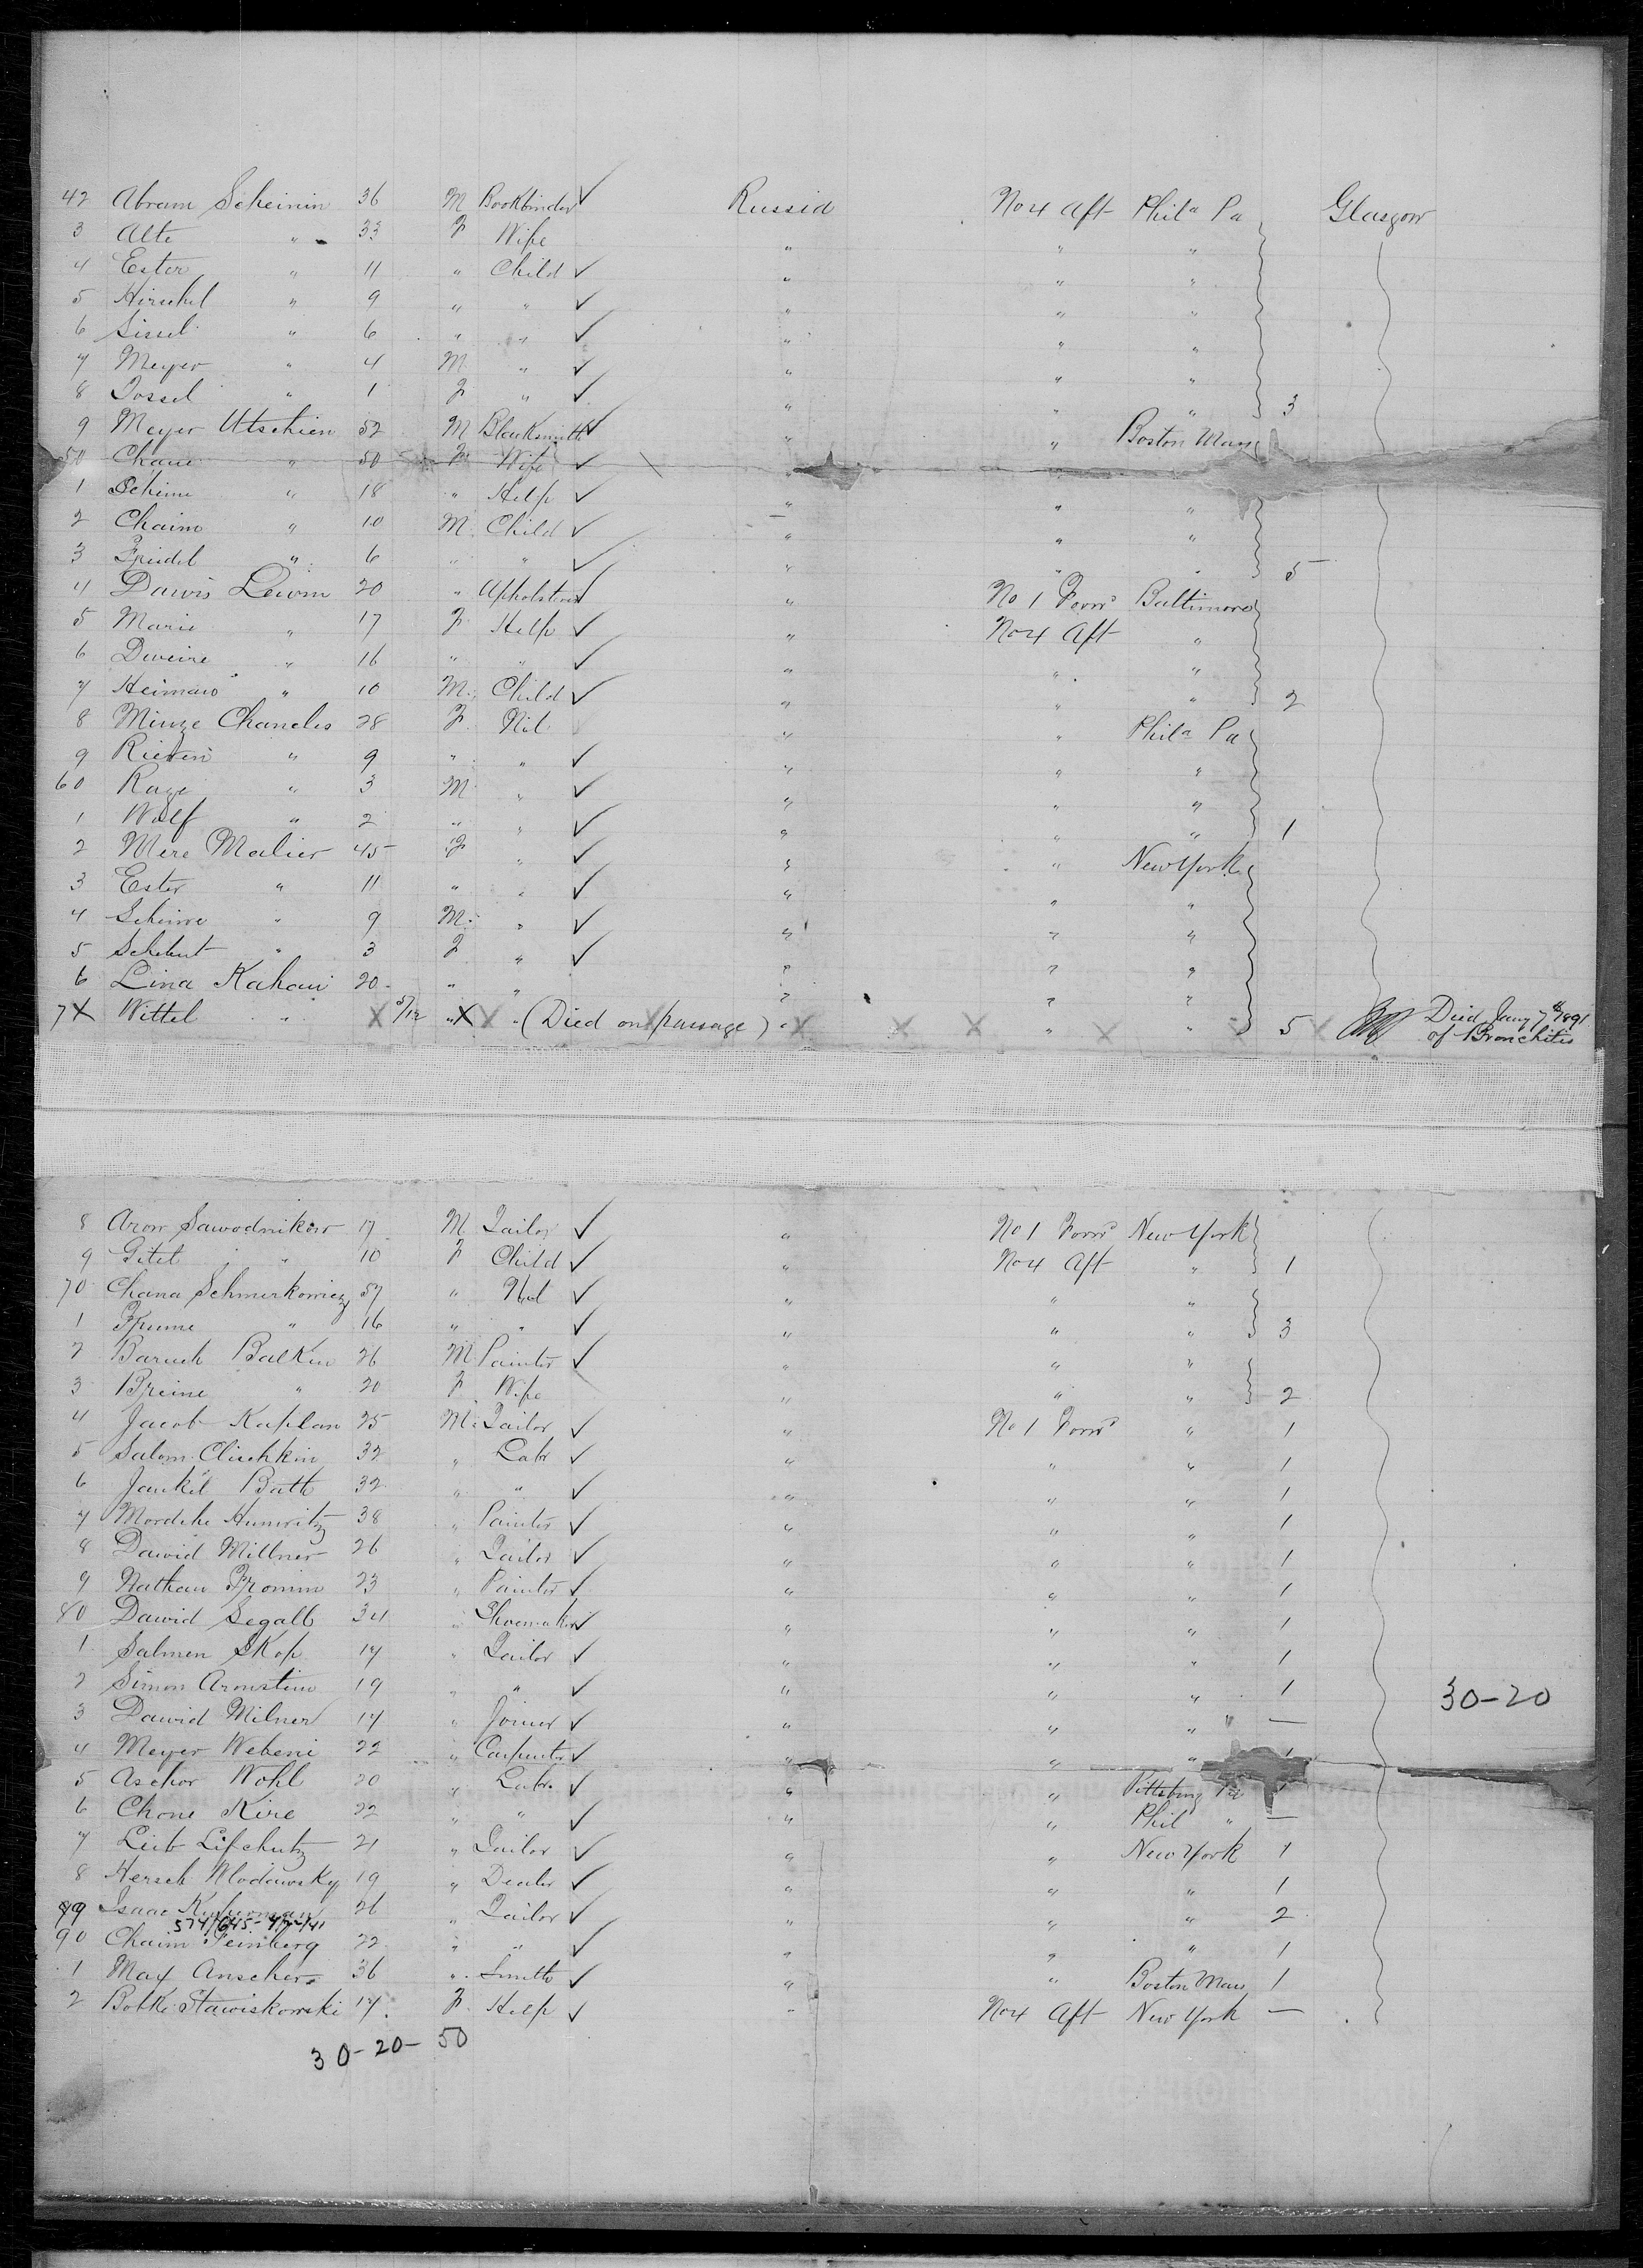 42 Abram Scheinin 36 M Bookbinder ✓ Russia No 4 Aft Phila Pa Glasgow
3 Alte " 33 F Wife " " "
4 Ester " 11 " Child ✓ " " "
5 Hirschel " 9 " " ✓ " " "
6 Sissel " 6 " " ✓ " " "
7 Meyer " 4 M " ✓ " " "
8 Dossel " 1 F " ✓ " " " 3
9 Meyer Utschien 52 M Blacksmith ✓ " " Boston Mass
50 Chane " 50 F Wife ✓ "
1 Scheine " 18 " Help ✓ " " "
2 Chaim " 10 M Child ✓ " " "
3 Freidel " 6 " " ✓ " " " 5
4 Dawis Lewin 20 " Upholsterer ✓ " No 1 Forrd Baltimore
5 Marie " 17 F Help ✓ " No 4 Aft "
6 Dweire " 16 " " ✓ " " "
7 Heiman " 10 M Child ✓ " " " 2
8 Minze Chaneles 28 F Nil " " Phila Pa
9 Riewen " 9 " " ✓ " " "
60 Raze " 3 M " ✓ " " "
1 Wolf " 2 " " ✓ " " " 1
2 Mere Malier 45 F " ✓ " " New York
3 Ester " 11 " " ✓ " " "
4 " 9 M " ✓ " " "
5 " 3 F " ✓ " " "
6 Lina Kahan 20 " " " " "
7 X Wittel " X 5/12 " X X " (Died on passage) " X X X " X " 5 X Died Jany 7th 1891
of Bronchitis
8 Aron Sawodnikow 17 M Tailor ✓ " No 1 Forrd New York
9 Gitel " 10 F Child ✓ " No 4 Aft " 1
70 Chana Schmerkowicz 57 " Nil ✓ " " "
1 Frume " 16 " " ✓ " " " 3
2 Baruch Balkin 26 M Painter ✓ " " "
3 Breine " 20 F Wife " " " 2
4 Jacob Kaplan 25 M Tailor ✓ " No 1 Forrd " 1
5 Salom 32 " Labr ✓ " " " 1
6 Jankel Bath 32 " " ✓ " " " 1
7 Mordche Hurwitz 38 " Painter ✓ " " " 1
8 Dawid Millner 26 " Tailor ✓ " " " 1
9 Nathan Fromm 23 " Painter ✓ " " " 1
80 Dawid Segall 34 " Shoemaker ✓ " " " 1
1 Salmen Skop 17 " Tailor ✓ " " " 1
2 Simon Aronstein 19 " " ✓ " " " 1 30-20
3 Dawid Milner 17 " Joiner ✓ " " " —
4 Meyer Webeni 22 " Carpenter ✓ " " " 1
5 Aschor Wohl 20 " Labr. ✓ " " Pittsburg Pa 1
6 Chone Kire 22 " " ✓ " " Phil " —
7 Leib Lifchutz 21 " Tailor ✓ " " New York 1
8 Hersch Wlodawsky 19 " Dealer ✓ " " " 1
89 Isaac Kuferman 26 " Tailor ✓ " " " 2
90 Chaim Feinberg 22 " " ✓ " " " 1
1 Max Anscher 36 " Smith ✓ " " Boston Mass 1
2 Bobke Stawiskowski 17 F Help ✓ " No 4 Aft New York —
30-20-50